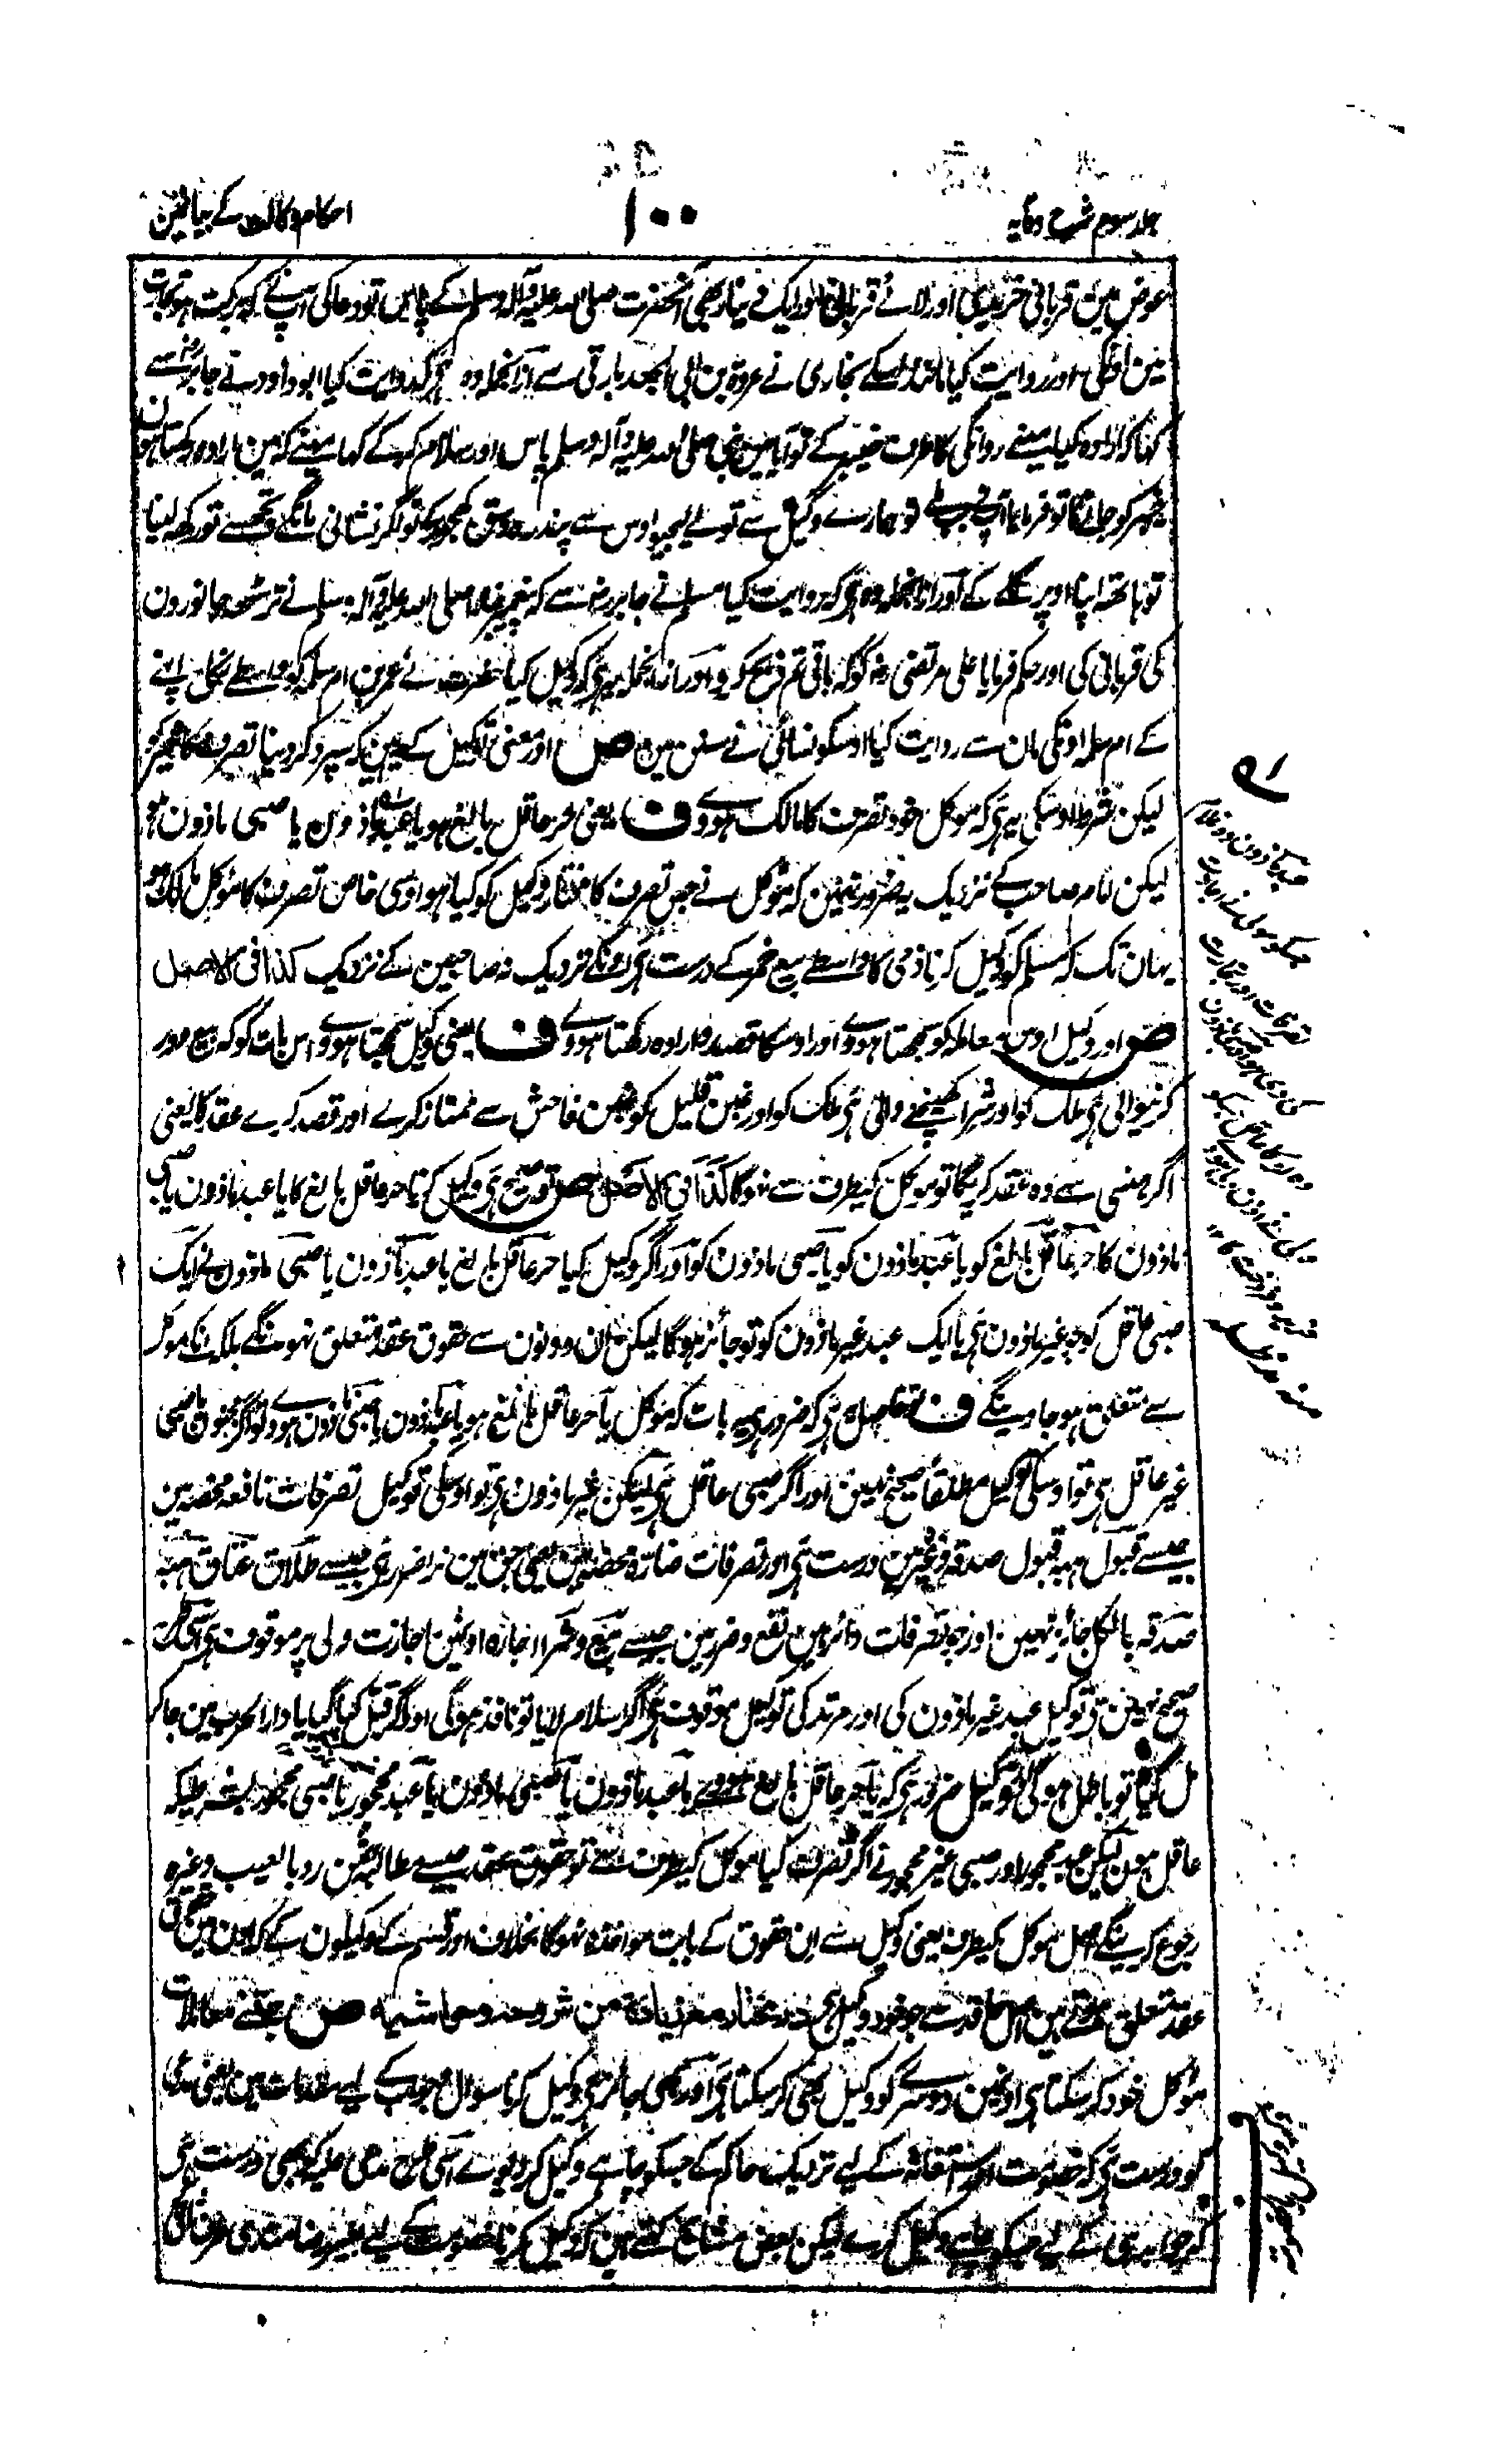 جلد سوم شرح وقایہ
۱۰۰
احکام وکالت کے بیانمین
عوض مین قربانی خریدی اور لائے قربانی اور ایک دینار بھی آنحضرت صلی اللہ علیہ وآلہ وسلم کے پاس تو دعا کی آپ نے کہ برکت ہو تجارت
مین اونکی اور روایت کیا مانند اسکے بخاری نے عروۃ بن ابی الجعد بارقی سے ازانجملہ وہ ہی کہ روایت کیا ابوداود نے جابر رض سے
کہا کہ ارادہ کیا مینے روانگی کا طرف خیبر کے تو آیا مین نبی صلی اللہ علیہ وآلہ وسلم پاس اور سلام کر کے کہا مینے کہ مین ارادہ رکھتا ہون
خیبر کو جانے کا تو فرمایا آپ نے جب ملے تو ہمارے وکیل سے تو لے لیجیو اوس سے پندرہ وسق کھجور کے تو اگر نشانی مانگے تجھسے تو رکھ لینا
تو ہاتھ اپنا اوپر گلے کے اور ازانجملہ وہ ہی کہ روایت کیا مسلم نے جابر رض سے کہ پیغمبر خدا صلی اللہ علیہ وآلہ وسلم نے ترسٹھ جانورون
کی قربانی کی اور حکم فرمایا علی مرتضی رض کو کہ باقی تم ذبح کرو اور ازانجملہ یہ ہی کہ وکیل کیا حضرت نے عمر بن ام سلمہ کو واسطے نکاح اپنے
کے ام سلمہ اونکی مان سے روایت کیا اوسکو نسائی نے سنن مین ص اور معنی توکیل کے یہ ہین کہ سپرد کر دینا تصرف کا غیر کو
لیکن شرط اوسکی یہ ہی کہ موکل خود تصرف کا مالک ہووے ف یعنی حر عاقل بالغ ہو یا عبد ماذون یا صبی ماذون ہو
لیکن امام صاحب کے نزدیک یہ ضرور نہین کہ موکل نے جس تصرف کا مختار وکیل کو کیا ہو اوسی خاص تصرف کا موکل مالک ہو
یہان تک کہ مسلم کو وکیل کرنا ذمی کا واسطے بیع خمر کے درست ہی اونکے نزدیک نہ صاحبین کے نزدیک کذا فی الاصل
ص اور وکیل اوس معاملہ کو سمجھتا ہووے اور اوسکا قصد و ارادہ رکھتا ہووے ف یعنی وکیل سمجھتا ہووے اس بات کو کہ بیع دور
کرنیوالی ہی ملک کو اور شرا کھینچنے والی ہی ملک کو اور غبن قلیل کو غبن فاحش سے ممتاز کرے اور قصد کرے عقد کا یعنی
اگر ہنسی سے وہ عقد کریگا تو موکل کیطرف سے نہوگا کذا فی الاصل ص تو صحیح ہی وکیل کرنا حر عاقل بالغ کا یا عبد ماذون یا صبی
ماذون کا حر عاقل بالغ کو یا عبد ماذون کو یا صبی ماذون کو اور اگر وکیل کیا حر عاقل بالغ یا عبد ماذون یا صبی ماذون نے ایک
صبی عاقل کو جو غیر ماذون ہی یا ایک عبد غیر ماذون کو تو جائز ہوگا لیکن ان دونون سے حقوق عقد متعلق نہونگے بلکہ انکے موکل
سے متعلق ہو جاوینگے ف حاصل یہ ہی کہ ضرور ہی یہ بات کہ موکل یا حر عاقل بالغ ہو یا عبد ماذون یا صبی ماذون ہووے تو اگر مجنون یا صبی
غیر عاقل ہی تو اوسکی توکیل مطلقا صحیح نہین اور اگر صبی عاقل ہی لیکن غیر ماذون ہی تو اوسکی توکیل تصرفات نافعہ محضہ مین
جیسے قبول ہبہ قبول صدقہ وغیرہ مین درست ہی اور تصرفات ضارہ محضہ مین یعنی جن مین نرا ضرر ہی جیسے طلاق عتاق ہبہ
صدقہ بالکل جائز نہین اور جو تصرفات دائر ہین نفع و ضرر مین جیسے بیع و شرا اجارہ اونمین اجازت ولی پر موقوف ہی اسیطرح
صحیح نہین ہی توکیل عبد غیر ماذون کی اور مرتد کی توکیل موقوف ہی اگر اسلام لایا تو نافذ ہوگی اور اگر قتل کیا گیا یا دارالحرب مین جا کر
مل گیا تو باطل ہوگی توکیل ضرور ہی کہ یا حر عاقل بالغ ہووے یا عبد ماذون یا صبی ماذون یا عبد محجور یا صبی محجور بشرطیکہ
عاقل ہون لیکن عبد محجور اور صبی غیر محجور نے اگر تصرف کیا موکل کیطرف سے تو حقوق عقد جیسے مطالبہ ثمن رد بالعیب وغیرہ
رجوع کرینگے اصل موکل کیطرف یعنی وکیل سے ان حقوق کے بابت مواخذہ نہوگا بخلاف اور قسم کے وکیلون کے کہ اون مین حقوق
عقد متعلق ہوتے ہین اصل عاقد سے جو خود وکیل ہی درمختار مع زیادة من شروحہ وحواشیہ ص جتنے معاملات
موکل خود کر سکتا ہی اونمین دوسرے کو وکیل بھی کر سکتا ہی اور بھی جائز ہی وکیل کرنا سوال و جواب کے لیے مقدمات مین یعنی مدعی
کو درست ہی کہ خصومت اور استغاثہ کے لیے نزدیک حاکم کے جسکو چاہے وکیل کر دیوے اسی طرح مدعی علیہ کو بھی درست ہی
کہ جوابدہی کے لیے جسکو چاہے وکیل کرے لیکن بعض مشائخ کہتے ہین کہ وکیل کرنا خصومت کے لیے بغیر رضامندی طرف ثانی
عبد ماذون وہ غلام
جسکو مولی نے اجازت
تصرفات اور تجارت
کی دی ہو اور صبی ماذون
وہ لڑکا عاقل جسکو